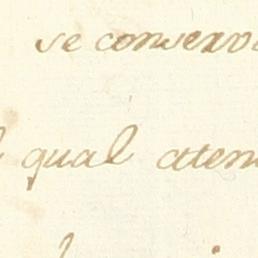 se conserva
qual atten